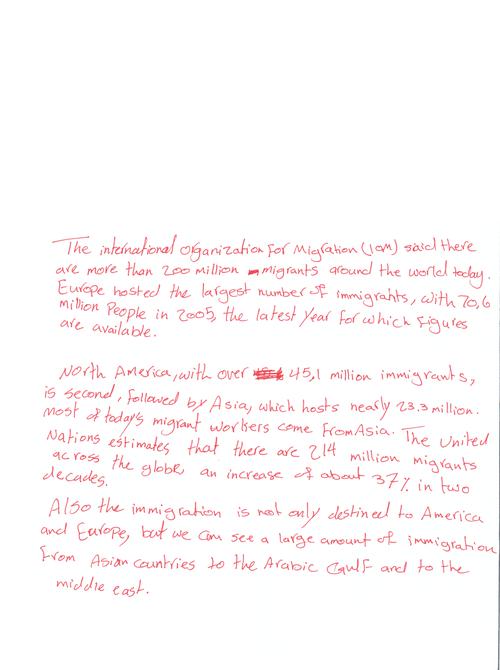 The international organization For Migration (IOM) said there
are more than 200 million migrants around the world today.
Europe hosted the largest number of immigrants, with 70,6
million People in 2005, the latest Year for which Figures
are available.
North America, with over 45,1 million immigrants,
is second, followed by Asia, which hosts nearly 23.3 million.
most of today's migrant workers come from Asia. The United
Nations estimates that there are 214 million migrants
across the globe, an increase of about 37% in two
decades.
Also the immigration is not only destined to America
and Europe, but we can see a large amount of immigration
From Asian countries to the Arabic Gulf and to the
middle east.